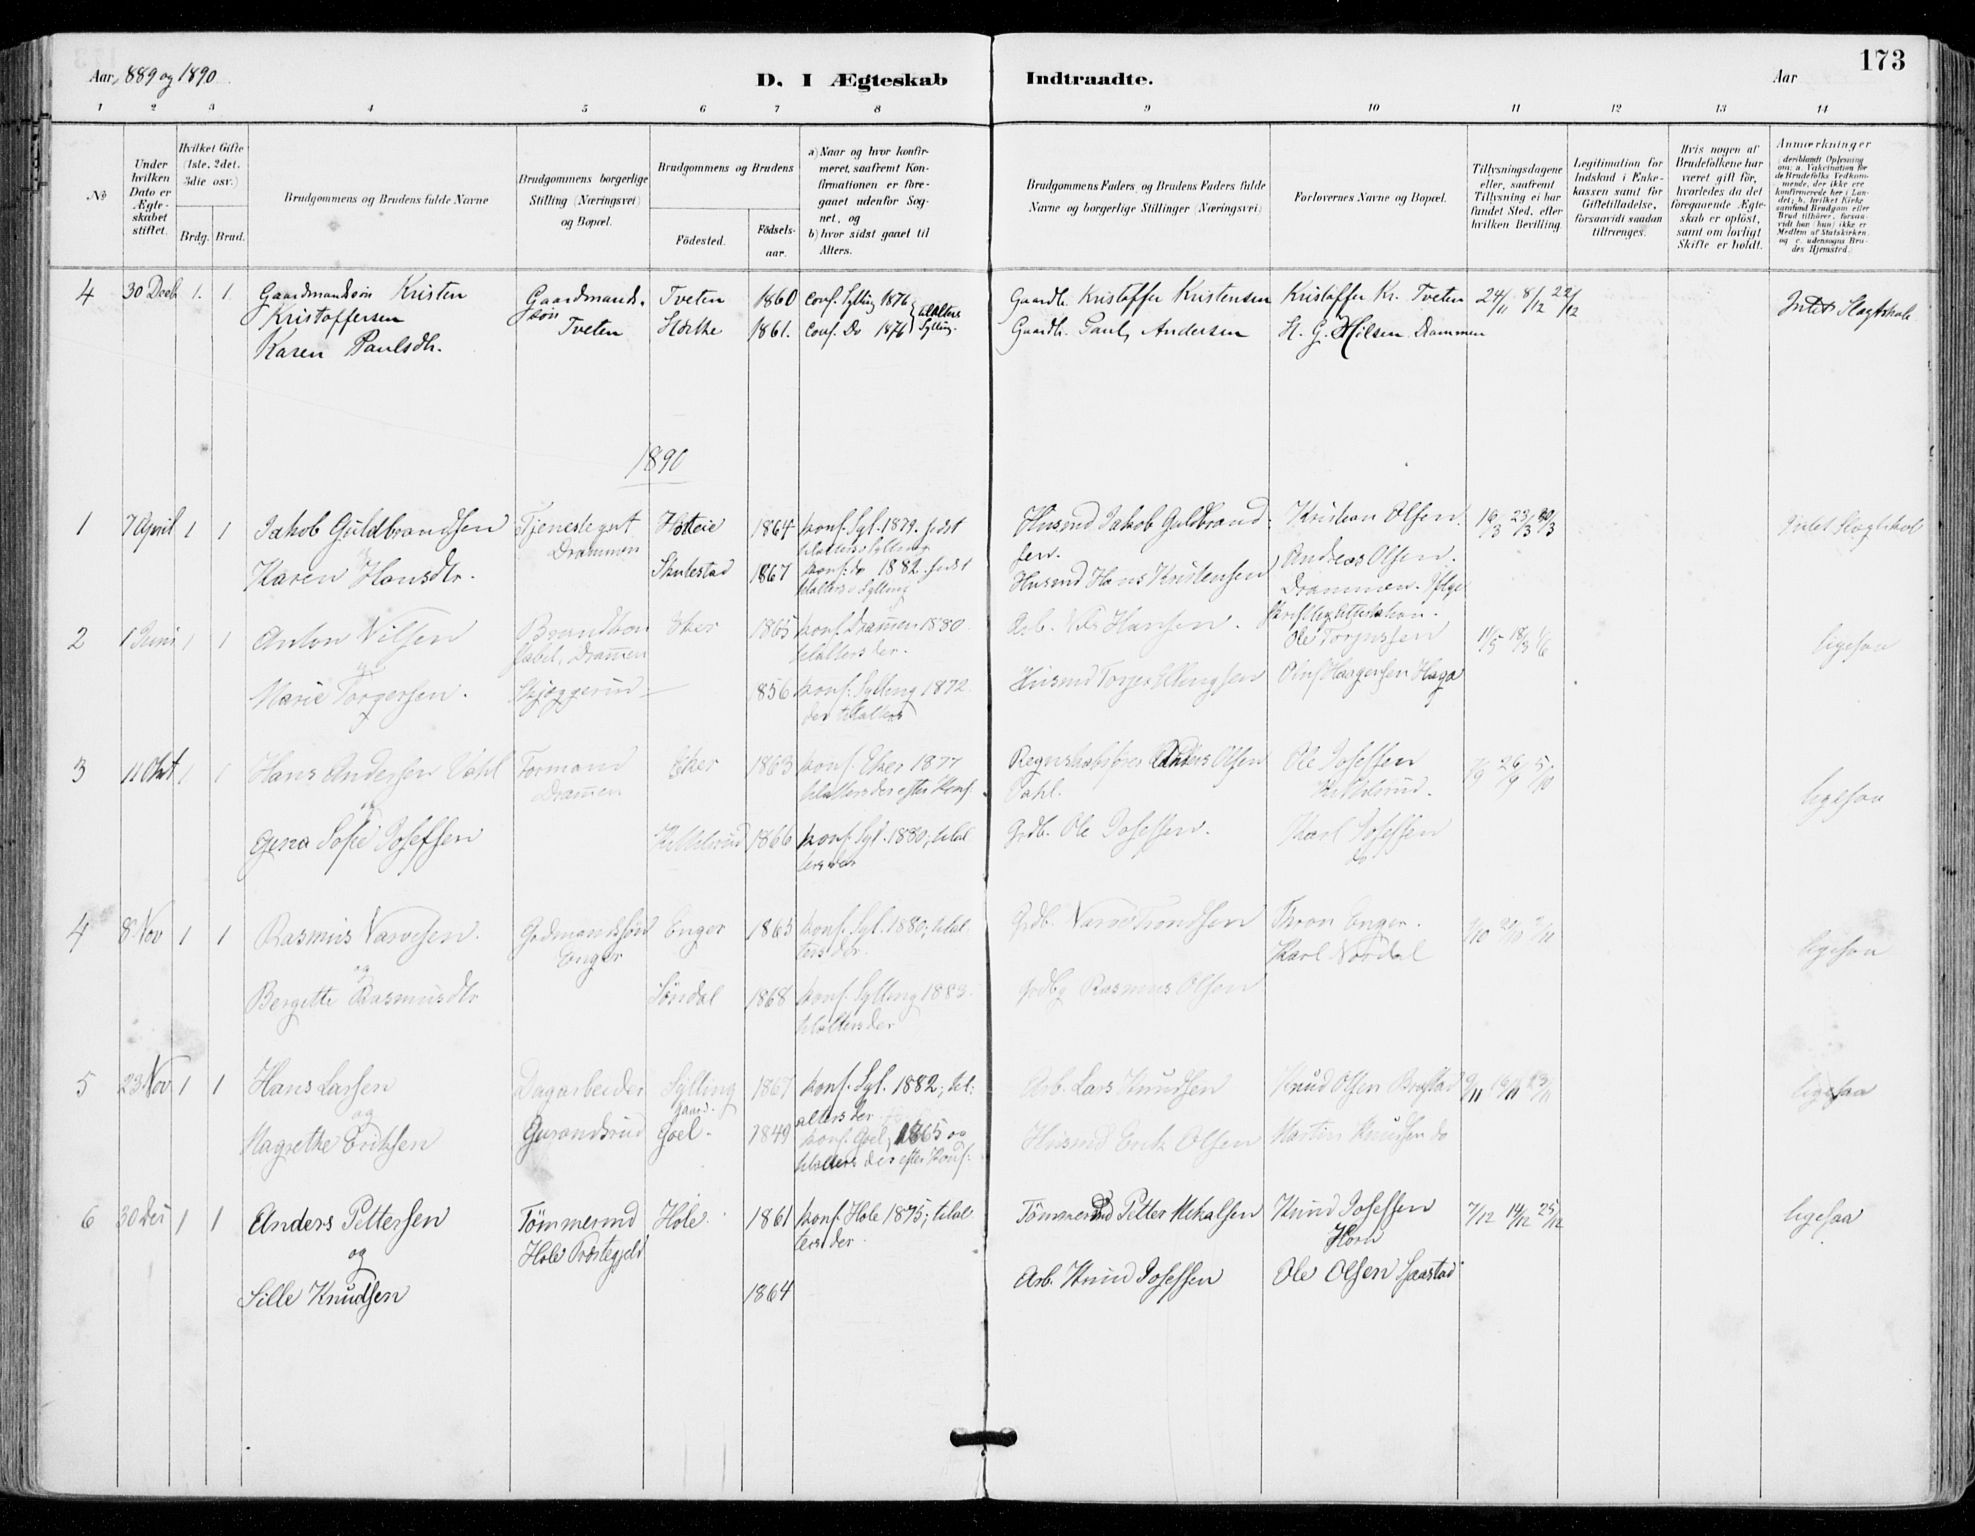 173
Aar 1889 og 1890
D. I Ægteskab Indtraadte.
Aar
1 2 3 4 5 6 7 8 9 10 11 12 13 14
No
Under hvilken Dato er Ægteskabet stiftet.
Hvilket Gifte (1ste, 2det, 3die osv.)
Brdg. Brud.
Brudgommens og Brudens fulde Navne
Brudgommens borgerlige Stilling (Næringsvei) og Bopæl.
Brudgommens og Brudens
Fødested.
Fødselsaar.
a) Naar og hvor konfirmeret, saafremt Konfirmationen er foregaaet udenfor Sognet, og
b) hvor sidst gaaet til Alters.
Brudgommens Faders og Brudens Faders fulde Navne og borgerlige Stillinger (Næringsvei)
Forlovernes Navne og Bopæl.
Tillysningsdagene eller, saafremt Tillysning ei har fundet Sted, efter hvilken Bevilling.
Legitimation for Indskud i Enkekassen samt for Giftetilladelse, forsaavidt saadan tiltrænges.
Hvis nogen af Brudefolkene har været gift før, hvorledes da det foregaaende Ægteskab er opløst, samt om lovligt Skifte er holdt.
Anmærkninger
(deriblandt Oplysning om: a. Vakcination for de Brudefolks Vedkommende, der ikke ere konfirmerede her i Landet; b. hvilket Kirkesamfund Brudgom eller Brud tilhører, forsaavidt han (hun) ikke er Medlem af Statskirken, og c. udensogns Brudes Hjemsted.)
4 30 Decb 1. 1 Gaardmandssøn Kristen Kristoffersen Gaardmandssøn Tveten Tveten 1860 Conf. Sylling 1876 Gaardb. Kristoffer Kristensen Kristoffer Kr. Tveten 24/11 8/12 22/12 Intet Slagtskab
Karen Paulsdtr. 1861. Conf. Do 1876 til Alters Sylling. Gaardb. Paul Andersen H. G. Hilsen Drammen
1890
1 7 April 1 1 Jakob Guldbrandsen Tjenestegut Drammen 1864 konf. Syl. 1879. sidst tilalters Sylling Husmd Jakob Guldbrandsen. Kristian Olsen. 16/3 23/3 30/3 Intet Slagtskab
og
Karen Hansdtr. 1867 konf. do 1882. sidst tilalters i Sylling Husmd Hans Kristensen Andreas Olsen. Drammen.
2 1 Juni 1 1 Anton Nilsen Eker 1865 konf. Drammen 1880 tilalters der. Arb. Nils Hansen. Ole Torgersen 11/5 18/5 1/6 ligesaa
og
Marie Torgersen. 1856 konf. Sylling 1872. der tilalters Husmd Torger Ellingsen
3 11 Okt 1 1 Hans Andersen Dahl Formand Drammen Eker 1863 konf. Eker 1877 tilalters der efter Konf. Regnskabsfører Anders Olsen Dahl. Ole Josefsen 26/9 5/10 ligesaa
og
Gena Sofie Josefsen 1866 konf. Syl. 1880; tilalters der Grdb. Ole Josefsen. Karl Josefsen do
4 8 Nov 1 1 Rasmus Narvesen. Grdmandssøn Enger Enger 1865 konf. Syl. 1880; tilalters der. Grdb. Narve Trondsen Thron Enger. Karl Nordal ligesaa
og
Bergitte Rasmusdtr Søndal 1868 konf. Sylling 1883. tilalters der Rasmus Olsen
5 23 Nov 1 1 Hans Larsen Dagarbeider Sylling 1867 konf. Syl. 1882; tilalters der Arb. Lars Knudsen Knud Olsen 9/11 16/11 23/11 ligesaa
og
Magrethe Eriksen 1849 1865 og tilalters der efter Konf. Husmd Erik Olsen Martin Knudsen do
6 30 Des 1 1 Anders Pettersen Tømmermd Hole Præstegjeld Hole 1861 konf. Hole 1875; tilalters der. Tømmermd Petter Mikalsen Knud Josefsen Horn 7/12 14/12 25/12 ligesaa
og
Sille Knudsen 1864 Arb. Knud Josefsen Ole Olsen